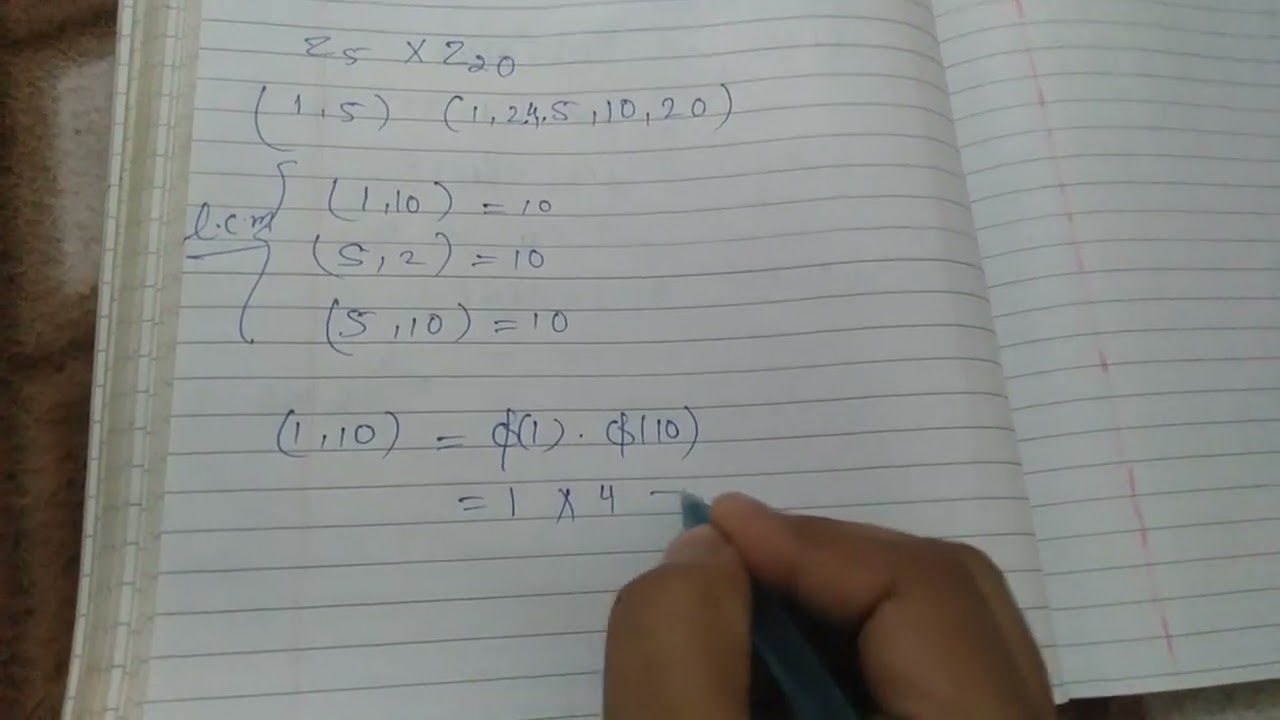 Z5 × Z20
(1,5) (1,2,4,5,10,20)
(1,10) = 10
l.c.m
(5,2) = 10
(5,10) = 10
(1,10) = ϕ(1) . ϕ(10)
= 1 × 4